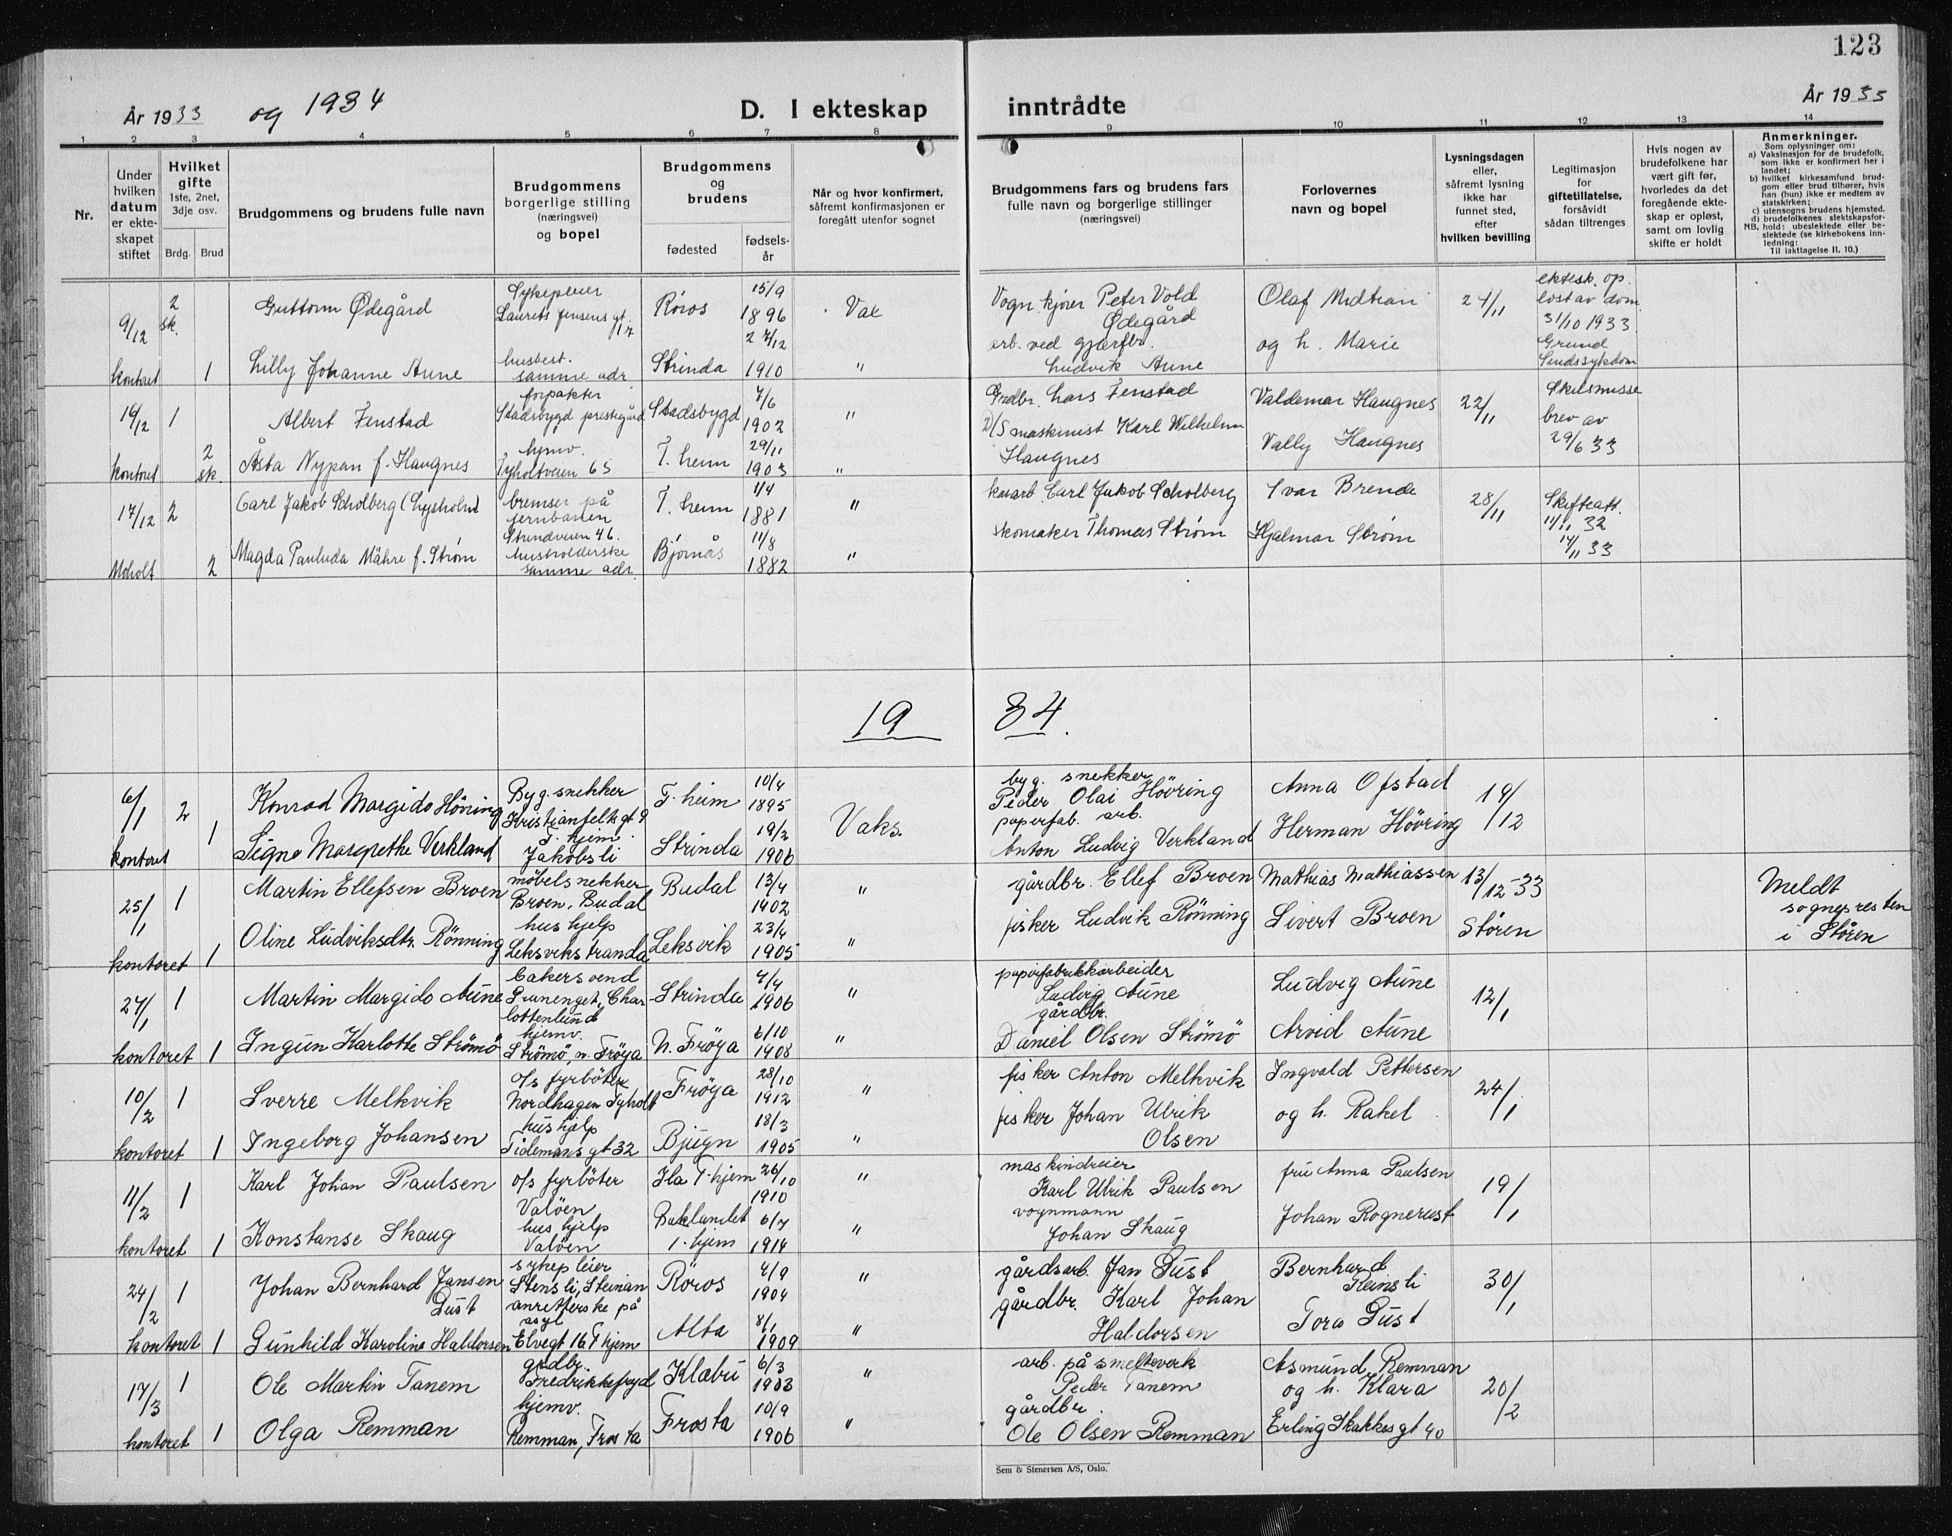 123
År 1933 og 1934
D. I ekteskap inntrådte
År 1935
1 2 3 4 5 6 7 8 9 10 11 12 13 14
Nr.
Under hvilken datum er ekteskapet stiftet
Hvilket gifte 1ste, 2net, 3dje osv.
Brdg. Brud
Brudgommens og brudens fulle navn
Brudgommens borgerlige stilling (næringsvei) og bopel
Brudgommens og brudens
fødested
fødselsår
Når og hvor konfirmert, såfremt konfirmasjonen er foregått utenfor sognet
Brudgommens fars og brudens fars fulle navn og borgerlige stillinger (næringsvei)
Forlovernes navn og bopel
Lysningsdagen eller, såfremt lysning ikke har funnet sted, efter hvilken bevilling
Legitimasjon for giftetillatelse, forsåvidt sådan tiltrenges
Hvis nogen av brudefolkene har vært gift før, hvorledes da det foregående ekteskap er opløst, samt om lovlig skifte er holdt
Anmerkninger.
Som oplysninger om:
a) Vaksinasjon for de brudefolk, som ikke er konfirmert her i landet;
b) hvilket kirkesamfund brudgom eller brud tilhører, hvis han (hun) ikke er medlem av statskirken;
c) utensogns brudens hjemsted.
d) brudefolkenes slektskapsforhold: ubeslektede eller beslektede (se kirkebokens innledning:
NB.
Til iakttagelse II. 10.)
9/12 2 sk. Guttorm Ødegård Sykepleier Laurits Jensens gt. 17 Røros 15/9 1896 Vax Vognkjører Peter Vold Ødegård Olaf Midtian 24/11 ektesk. opløst av dom 31/10 1933 Grund Sindssykdom
kontoret 1 Lilly Johanne Aune husbest. samme adr. Strinda 27/12 1910 " arb. ved gjærfbr. Ludvik Aune og h. Marie
16/12 1 Albert Fenstad forpakter Stadsbygd prestegård Stadsbygd 7/6 1902 " Grdbr. Lars Fenstad Valdemar Haugnes 22/11 Skilsmisse brev av 29/6 33
kontoret 2 sk. Åsta Nypan f. Haugnes hjmv. Tyholtveien 65 T.heim 29/11 1903 " D/S maskinist Karl Wilhelm Haugnes Vally Haugnes
17/12 2 Carl Jakob Scholberg (Lysholm) bremser på jernbanen Strindveien 46. T.heim 1/4 1881 " Carl Jakob Scholberg Ivar Brende 28/11 Skifteatt. 11/11 32 14/11 33
Moholt 2 Magda Pauluda Mähre f. Strøm husholderske samme adr. Bjørnås 11/8 1882 " skomaker Thomas Strøm Hjalmar Strøm
19 34.
6/1 2 Konrad Margido Höning Byg. snekker Kristianfeldtgt 9 T.hjem T.heim 10/4 1895 Vaks. byg. snekker Peder Olai Hövring Anna Ofstad 19/12
kontoret 1 Signe Margrethe Verkland Jakobsli Strinda 19/2 1906 papirfab. arb. Anton Ludvig Verkland Herman Hövring
25/1 1 Martin Ellefsen Broen möbelsnekker Broen, Budal Budal 13/4 1902 " gårdbr. Ellef Broen Mathias Mathiassen 13/12-33 Stören Meldt sognepresten i Stören
kontoret 1 Oline Ludviksdtr. Rönning hushjelp Leksvikstranda Leksvik 23/4 1905 " fisker Ludvik Rönning Sivert Broen
27/1 1 Martin Margido Aune bakersvend Granenget, Charlottenlund Strinda 4/4 1906 " papirfabrikkarbeider Ludvig Aune Ludvig Aune 12/1
kontoret 1 Ingun Karlotte Strömö hjemv. Strömö, N. Fröya N. Fröya 6/10 1908 " gårdbr. Daniel Olsen Strömö Arvid Aune
10/2 1 Sverre Melkvik o/s fyrböter Nordhagen Tyholt Fröya 28/10 1912 " fisker Anton Melkvik Ingvald Pettersen 24/1
kontoret 1 Ingeborg Johansen hushjelp Tidemans gt 32 Bjugn 18/3 1905 " fisker Johan Ulrik Olsen og h. Rakel
11/2 1 Karl Johan Paulsen o/s fyrböter Valöen Ila T.hjem 26/10 1910 " maskindreier Karl Ulrik Paulsen fru Anna Paulsen 19/1
kontoret 1 Konstanse Skaug hushjelp Valöen Baklandet T.hjem 6/7 1914 " vognmann Johan Skaug Johan Rognerust
24/2 1 Johan Bernhard Jansen Dust sykepleier Stensli, Steinan Röros 4/9 1904 " gårdsarb. Jan Dust Bernhard Reinsli 30/1
kontoret 1 Gunhild Karoline Haldorsen anretterske på asyl Elvegt 16 T hjem Alta 8/1 1909 " gårdbr. Karl Johan Haldorsen Tora Dust
17/3 1 Ole Martin Tanem grdbr. Fredrikkefryd Klæbu 6/3 1903 " arb. på smelteverk Peder Tanem Asmund Remman og h. Klara 20/2
kontoret 1 Olga Remman hjemv. Remman, Frosta Frosta 10/9 1906 " gårdbr. Ole Olsen Remman Erling Skakkes gt 40
Sem & Stenersen A/S, Oslo.